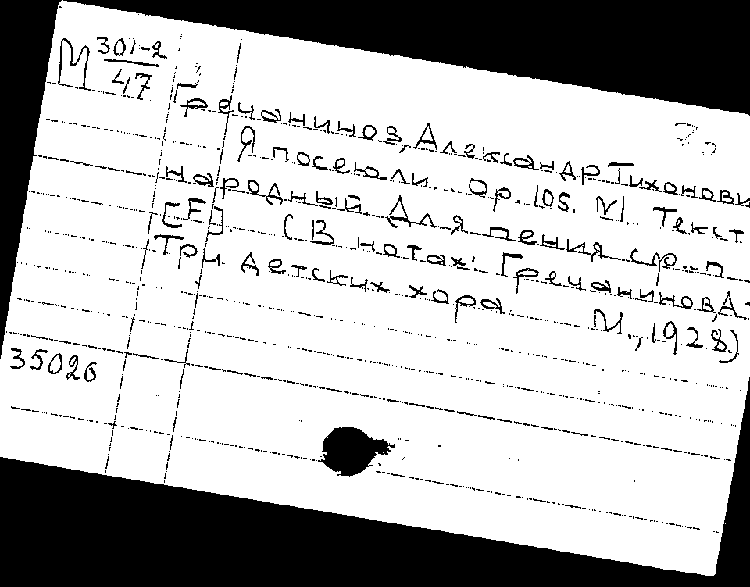 М 301-2
47
Гречанинов, Александр Тихонови
Я посею ли... Op. 105. №1 Текст
народный Для пения с ф.-п.
[F]. (В нотах: Гречанинов, А.
Три детских хора М., 1928)
35026